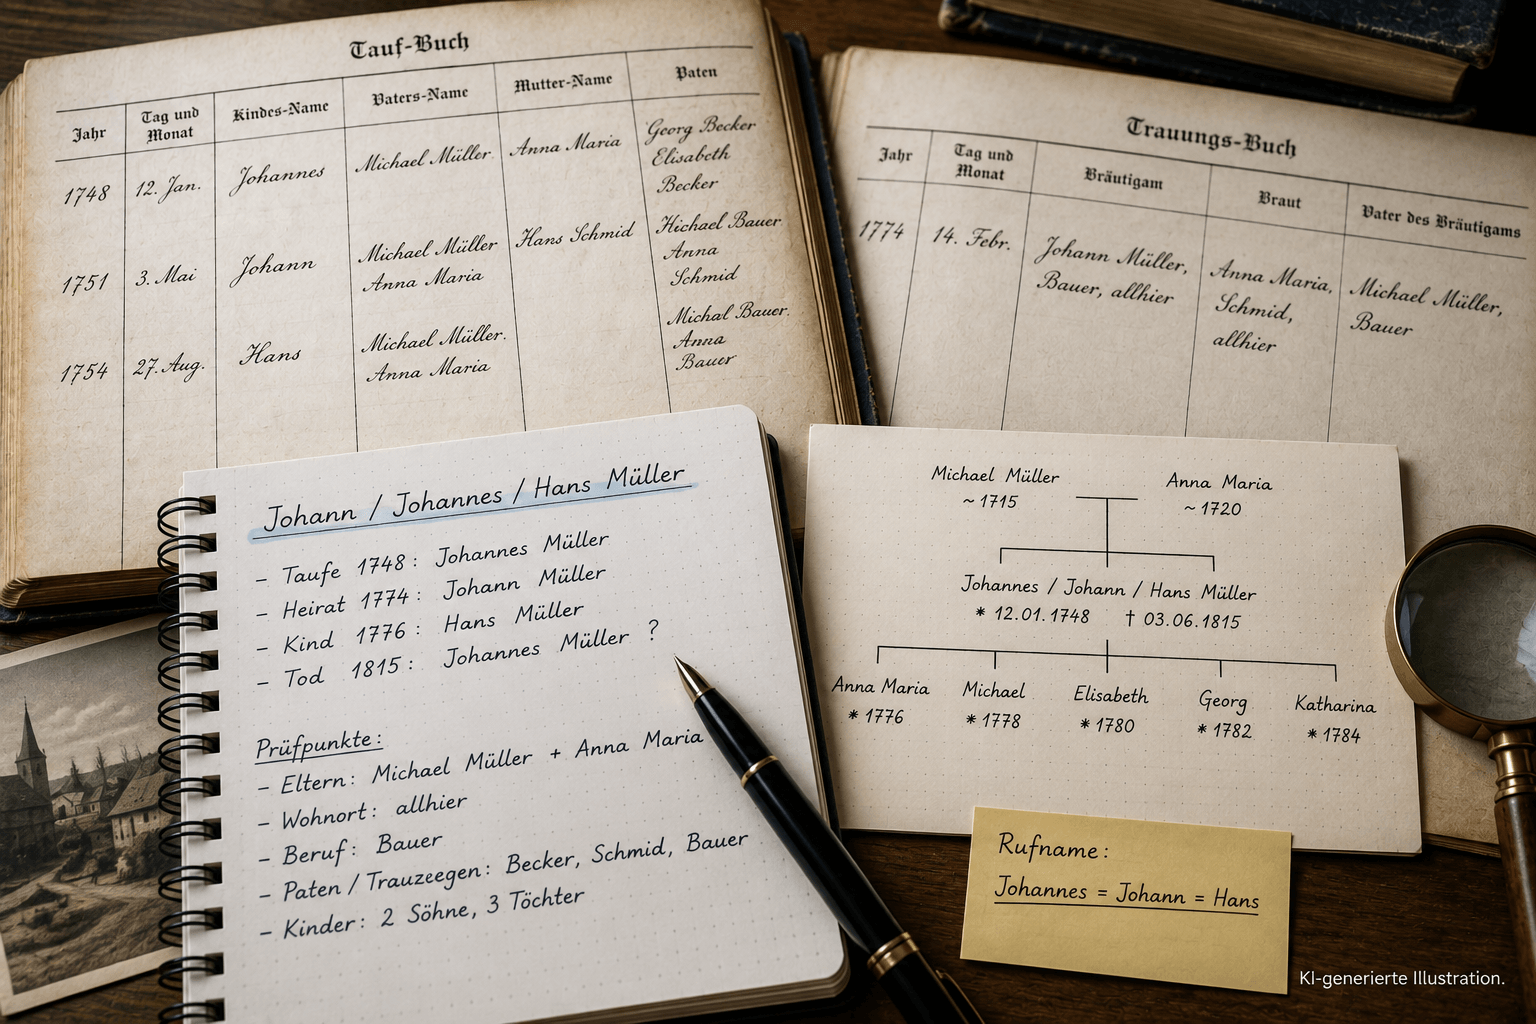 Tauf-Buch
Jahr
Tag und
Monat
Kindes-Name
Vaters-Name
Mutter-Name
Paten
1748
12. Jan.
Johannes
Michael Müller
Anna Maria
Georg Becker
Elisabeth
Becker
1751
3. Mai
Johann
Michael Müller
Anna Maria
Hans Schmid
Hichael Bauer
Anna
Schmid
1754
27. Aug.
Hans
Michael Müller.
Anna Maria
Michal Bauer.
Anna
Bauer
Trauungs-Buch
Jahr
Tag und
Monat
Bräutigam
Braut
Vater des Bräutigams
1774
14. Febr.
Johann Müller,
Bauer, allhier
Anna Maria,
Schmid,
allhier
Michael Müller,
Bauer
Johann / Johannes / Hans Müller
– Taufe 1748: Johannes Müller
– Heirat 1774: Johann Müller
– Kind 1776: Hans Müller
– Tod 1815: Johannes Müller ?
Prüfpunkte:
– Eltern: Michael Müller + Anna Maria
– Wohnort: allhier
– Beruf: Bauer
– Paten / Trauzeegen: Becker, Schmid, Bauer
– Kinder: 2 Söhne, 3 Töchter
Michael Müller
~ 1715
Anna Maria
~ 1720
Johannes / Johann / Hans Müller
* 12.01.1748 † 03.06.1815
Anna Maria
* 1776
Michael
* 1778
Elisabeth
* 1780
Georg
* 1782
Katharina
* 1784
Rufname:
Johannes = Johann = Hans
KI-generierte Illustration.